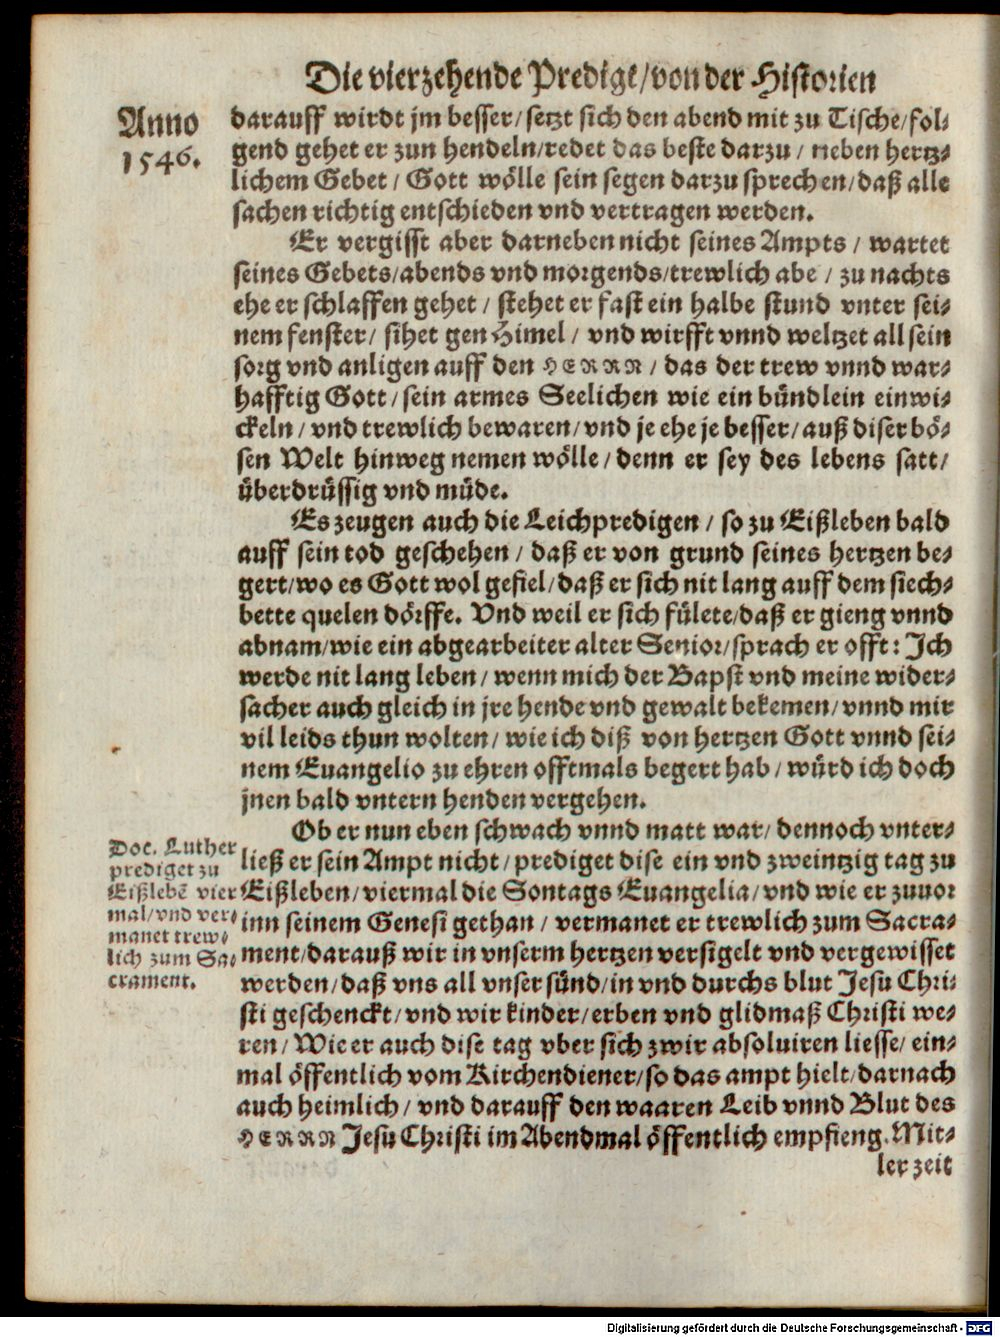 Die vierzehende Predigt/von der Historien
Anno
1546.
darauff wirdt jm besser/setzt sich den abend mit zu Tische/fol⸗
gend gehet er zun hendeln/redet das beste darzu/ neben hertz⸗
lichem Gebet/ Gott wölle sein segen darzu sprechen/daß alle
sachen richtig entschieden vnd vertragen werden.
Er vergisst aber darneben nicht seines Ampts/ wartet
seines Gebets/abends vnd morgends/trewlich abe/ zu nachts
ehe er schlaffen gehet/ stehet er fast ein halbe stund vnter sei⸗
nem fenster/ sihet gen Himel/ vnd wirfft vnnd weltzet all sein
sorg vnd anligen auff den HERRN/ das der trew vnnd war⸗
hafftig Gott/sein armes Seelichen wie ein bündlein einwi⸗
ckeln/ vnd trewlich bewaren/vnd je ehe je besser/auß diser bö⸗
sen Welt hinweg nemen wölle/denn er sey des lebens satt/
überdrüssig vnd müde.
Es zeugen auch die Leichpredigen/ so zu Eißleben bald
auff sein tod geschehen/ daß er von grund seines hertzen be⸗
gert/wo es Gott wol gefiel/daß er sich nit lang auff dem siech⸗
bette quelen dörffe. Vnd weil er sich fülete/daß er gieng vnnd
abnam/wie ein abgearbeiter alter Senior/sprach er offt: Ich
werde nit lang leben/ wenn mich der Bapst vnd meine wider⸗
sacher auch gleich in jre hende vnd gewalt bekemen/vnnd mir
vil leids thun wolten/ wie ich diß von hertzen Gott vnnd sei⸗
nem Euangelio zu ehren offtmals begert hab/ würd ich doch
jnen bald vntern henden vergehen.
Ob er nun eben schwach vnnd matt war/ dennoch vnter⸗
ließ er sein Ampt nicht/ prediget dise ein vnd zweintzig tag zu
Eißleben/viermal die Sontags Euangelia/vnd wie er zuuor
inn seinem Genesi gethan/ vermanet er trewlich zum Sacra⸗
ment/darauß wir in vnserm hertzen versigelt vnd vergewisset
werden/daß vns all vnser sünd/in vnd durchs blut Jesu Chri⸗
sti geschenckt/vnd wir kinder/erben vnd glidmaß Christi we⸗
ren/ Wie er auch dise tag vber sich zwir absoluiren liesse/ ein⸗
mal öffentlich vom Kirchendiener/so das ampt hielt/darnach
auch heimlich/ vnd darauff den waaren Leib vnnd Blut des
HERRN Jesu Christi im Abendmal öffentlich empfieng. Mit⸗
ler zeit
Doc. Luther
prediget zu
Eißlebē vier
mal/vnd ver⸗
manet trew⸗
lich zum Sa⸗
crament.
Digitalisierung gefördert durch die Deutsche Forschungsgemeinschaft - DFG